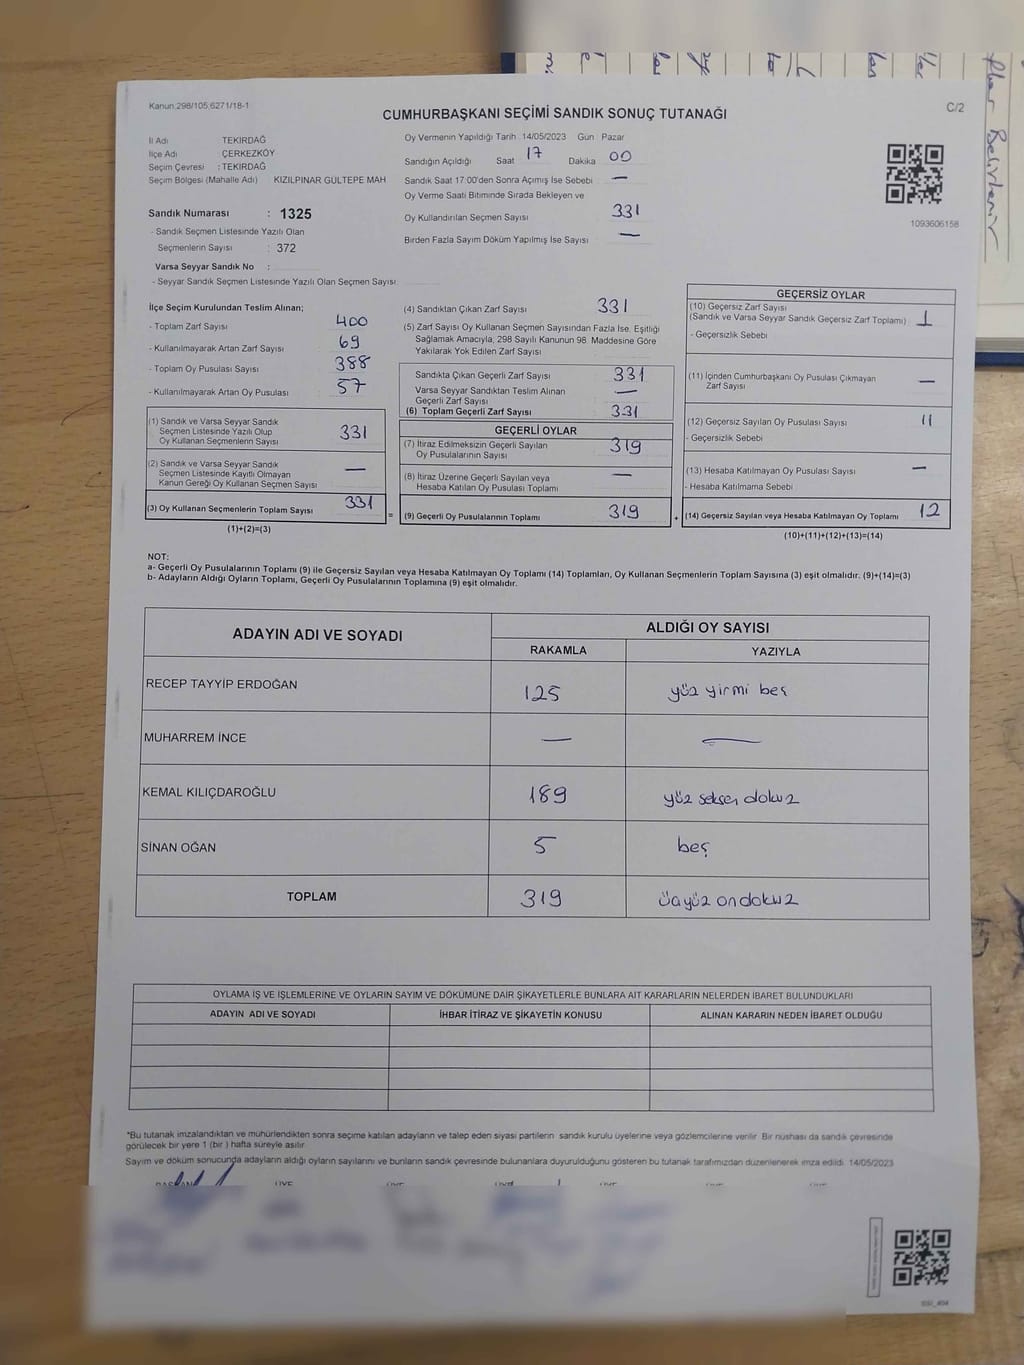 Kanun:298/105,6271/18-1
C/2
CUMHURBAŞKANI SEÇİMİ SANDIK SONUÇ TUTANAĞI
İl Adı : TEKİRDAĞ
İlçe Adı : ÇERKEZKÖY
Seçim Çevresi : TEKİRDAĞ
Seçim Bölgesi (Mahalle Adı) KIZILPINAR GÜLTEPE MAH
Sandık Numarası : 1325
- Sandık Seçmen Listesinde Yazılı Olan
Seçmenlerin Sayısı : 372
Varsa Seyyar Sandık No :
- Seyyar Sandık Seçmen Listesinde Yazılı Olan Seçmen Sayısı
Oy Vermenin Yapıldığı Tarih 14/05/2023 Gün Pazar
Sandığın Açıldığı Saat 17 Dakika 00
Sandık Saat 17:00'den Sonra Açımış İse Sebebi —
Oy Verme Saati Bitiminde Sırada Bekleyen ve
Oy Kullandırılan Seçmen Sayısı 331
Birden Fazla Sayım Döküm Yapılmış İse Sayısı —
1093606158
İlçe Seçim Kurulundan Teslim Alınan;
- Toplam Zarf Sayısı 400
- Kullanılmayarak Artan Zarf Sayısı 69
- Toplam Oy Pusulası Sayısı 388
- Kullanılmayarak Artan Oy Pusulası 57
(1) Sandık ve Varsa Seyyar Sandık
Seçmen Listesinde Yazılı Olup
Oy Kullanan Seçmenlerin Sayısı 331
(2) Sandık ve Varsa Seyyar Sandık
Seçmen Listesinde Kayıtlı Olmayan
Kanun Gereği Oy Kullanan Seçmen Sayısı —
(3) Oy Kullanan Seçmenlerin Toplam Sayısı 331
(1)+(2)=(3)
(4) Sandıktan Çıkan Zarf Sayısı 331
(5) Zarf Sayısı Oy Kullanan Seçmen Sayısından Fazla İse, Eşitliği
Sağlamak Amacıyla, 298 Sayılı Kanunun 98. Maddesine Göre
Yakılarak Yok Edilen Zarf Sayısı
Sandıkta Çıkan Geçerli Zarf Sayısı 331
Varsa Seyyar Sandıktan Teslim Alınan
Geçerli Zarf Sayısı —
(6) Toplam Geçerli Zarf Sayısı 331
GEÇERLİ OYLAR
(7) İtiraz Edilmeksizin Geçerli Sayılan
Oy Pusulalarının Sayısı 319
(8) İtiraz Üzerine Geçerli Sayılan veya
Hesaba Katılan Oy Pusulası Toplamı —
= (9) Geçerli Oy Pusulalarının Toplamı 319
GEÇERSİZ OYLAR
(10) Geçersiz Zarf Sayısı
(Sandık ve Varsa Seyyar Sandık Geçersiz Zarf Toplamı) 1
- Geçersizlik Sebebi
(11) İçinden Cumhurbaşkanı Oy Pusulası Çıkmayan
Zarf Sayısı —
(12) Geçersiz Sayılan Oy Pusulası Sayısı 11
- Geçersizlik Sebebi
(13) Hesaba Katılmayan Oy Pusulası Sayısı —
- Hesaba Katılmama Sebebi
+ (14) Geçersiz Sayılan veya Hesaba Katılmayan Oy Toplamı 12
(10)+(11)+(12)+(13)=(14)
NOT:
a- Geçerli Oy Pusulalarının Toplamı (9) ile Geçersiz Sayılan veya Hesaba Katılmayan Oy Toplamı (14) Toplamları, Oy Kullanan Seçmenlerin Toplam Sayısına (3) eşit olmalıdır. (9)+(14)=(3)
b- Adayların Aldığı Oyların Toplamı, Geçerli Oy Pusulalarının Toplamına (9) eşit olmalıdır.
ADAYIN ADI VE SOYADI ALDIĞI OY SAYISI
RAKAMLA YAZIYLA
RECEP TAYYİP ERDOĞAN 125 yüz yirmi beş
MUHARREM İNCE — —
KEMAL KILIÇDAROĞLU 189 yüz seksen dokuz
SİNAN OĞAN 5 beş
TOPLAM 319 üçyüz ondokuz
OYLAMA İŞ VE İŞLEMLERİNE VE OYLARIN SAYIM VE DÖKÜMÜNE DAİR ŞİKAYETLERLE BUNLARA AİT KARARLARIN NELERDEN İBARET BULUNDUKLARI
ADAYIN ADI VE SOYADI İHBAR İTİRAZ VE ŞİKAYETİN KONUSU ALINAN KARARIN NEDEN İBARET OLDUĞU
*Bu tutanak imzalandıktan ve mühürlendikten sonra seçime katılan adayların ve talep eden siyasi partilerin sandık kurulu üyelerine veya gözlemcilerine verilir. Bir nüshası da sandık çevresinde
görülecek bir yere 1 (bir) hafta süreyle asılır.
Sayım ve döküm sonucunda adayların aldığı oyların sayılarını ve bunların sandık çevresinde bulunanlara duyurulduğunu gösteren bu tutanak tarafımızdan düzenlenerek imza edildi. 14/05/2023